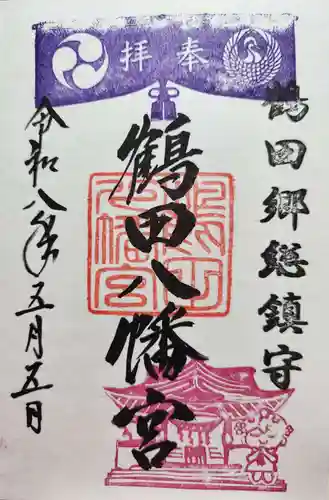 奉拝
鶴田郷総鎮守
鶴田八幡宮
令和八年五月五日